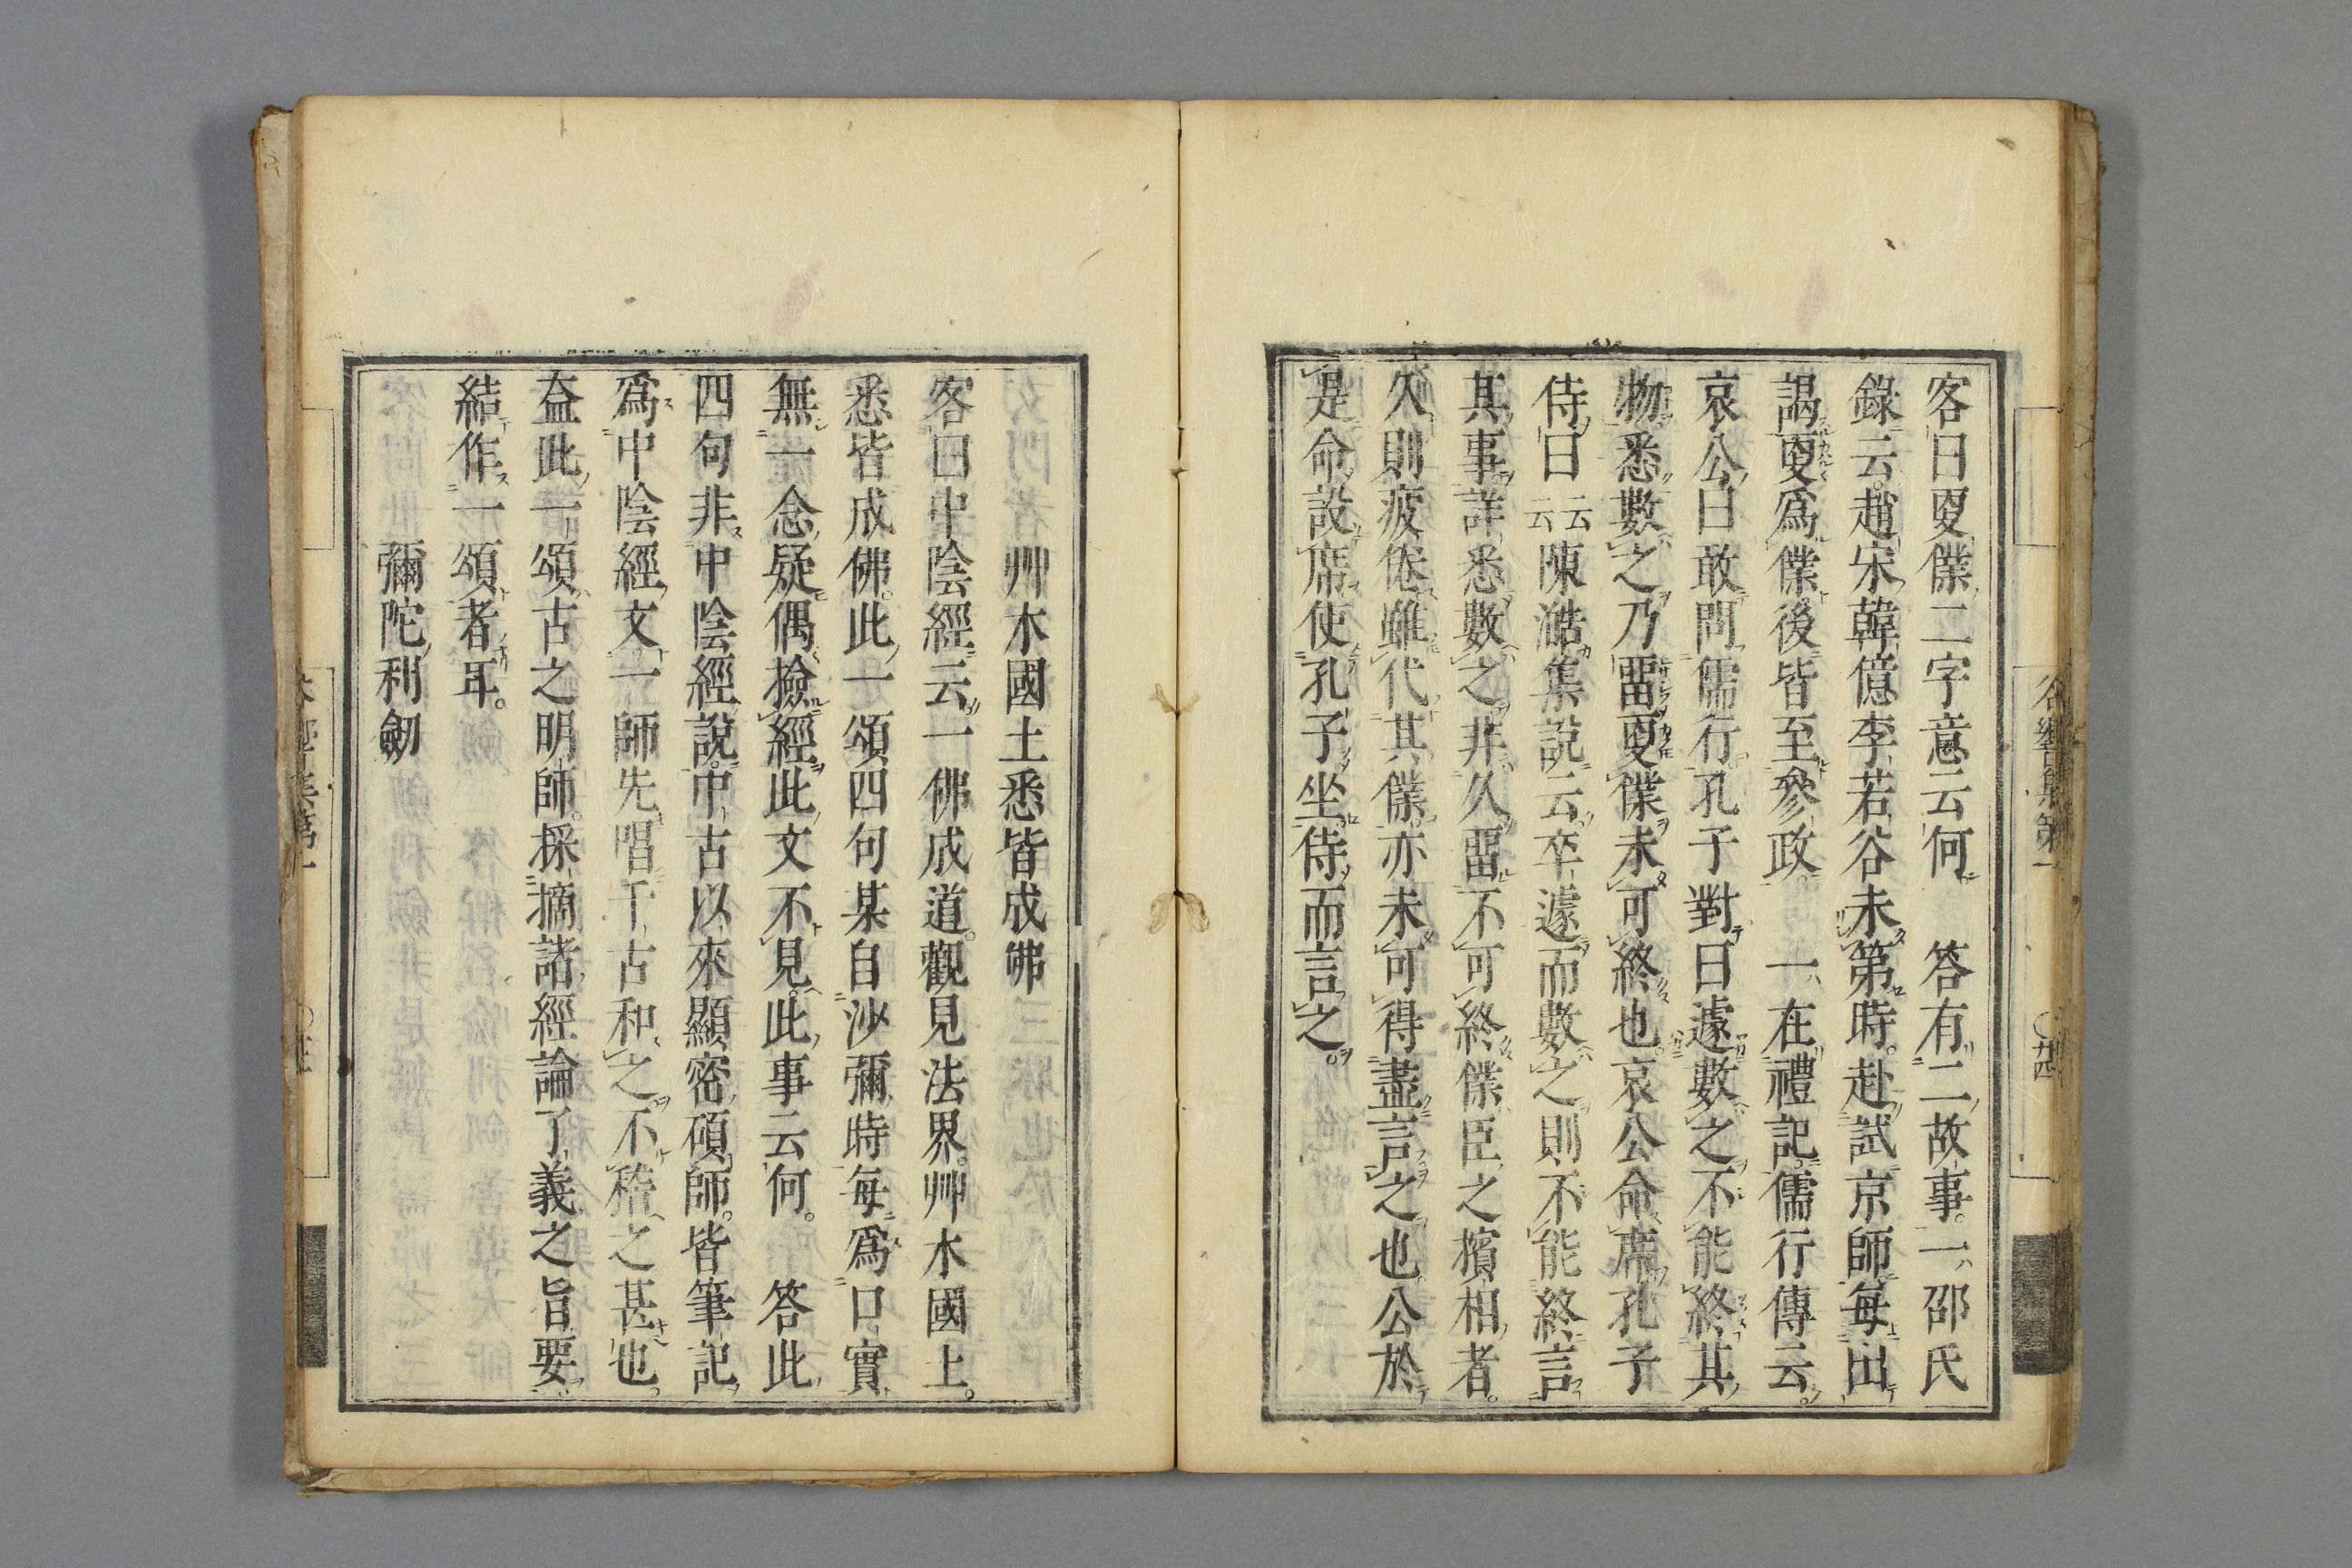 客曰㪅僕二字意云何　答有二故事。一、邵氏
錄云。趙宋韓億李若谷未第時。赴試京師每出
謁㪅爲僕。後皆至參政。　一、在禮記。儒行傳云。
哀公曰敢問儒行。孔子對曰遽數之不能終其
物。悉數之乃畱㪅僕未可終也。哀公命席孔子
侍曰云云陳澔集說云。卒遽而數之則不能終言
其事。詳悉數之。非久畱不可終僕臣之擯相者。
久則疲倦雖代其僕。亦未可得盡言之也公於
是命設席使孔子坐侍而言之。
艸木國土悉皆成佛
客曰中陰經云一佛成道。觀見法界。艸木國土。
悉皆成佛。此一頌四句某自沙彌時每爲口實
無一念疑偶撿經此文不見。此事云何。　答此
四句非中陰經說。中古以來顯密碩師。皆筆記
爲中陰經文一師先唱千古和之。不稽之甚也。
益此一頌古之明師。採摘諸經論了義之旨要。
結作一頌者耳。
彌陀利劒
谷響集第一
〇廿四